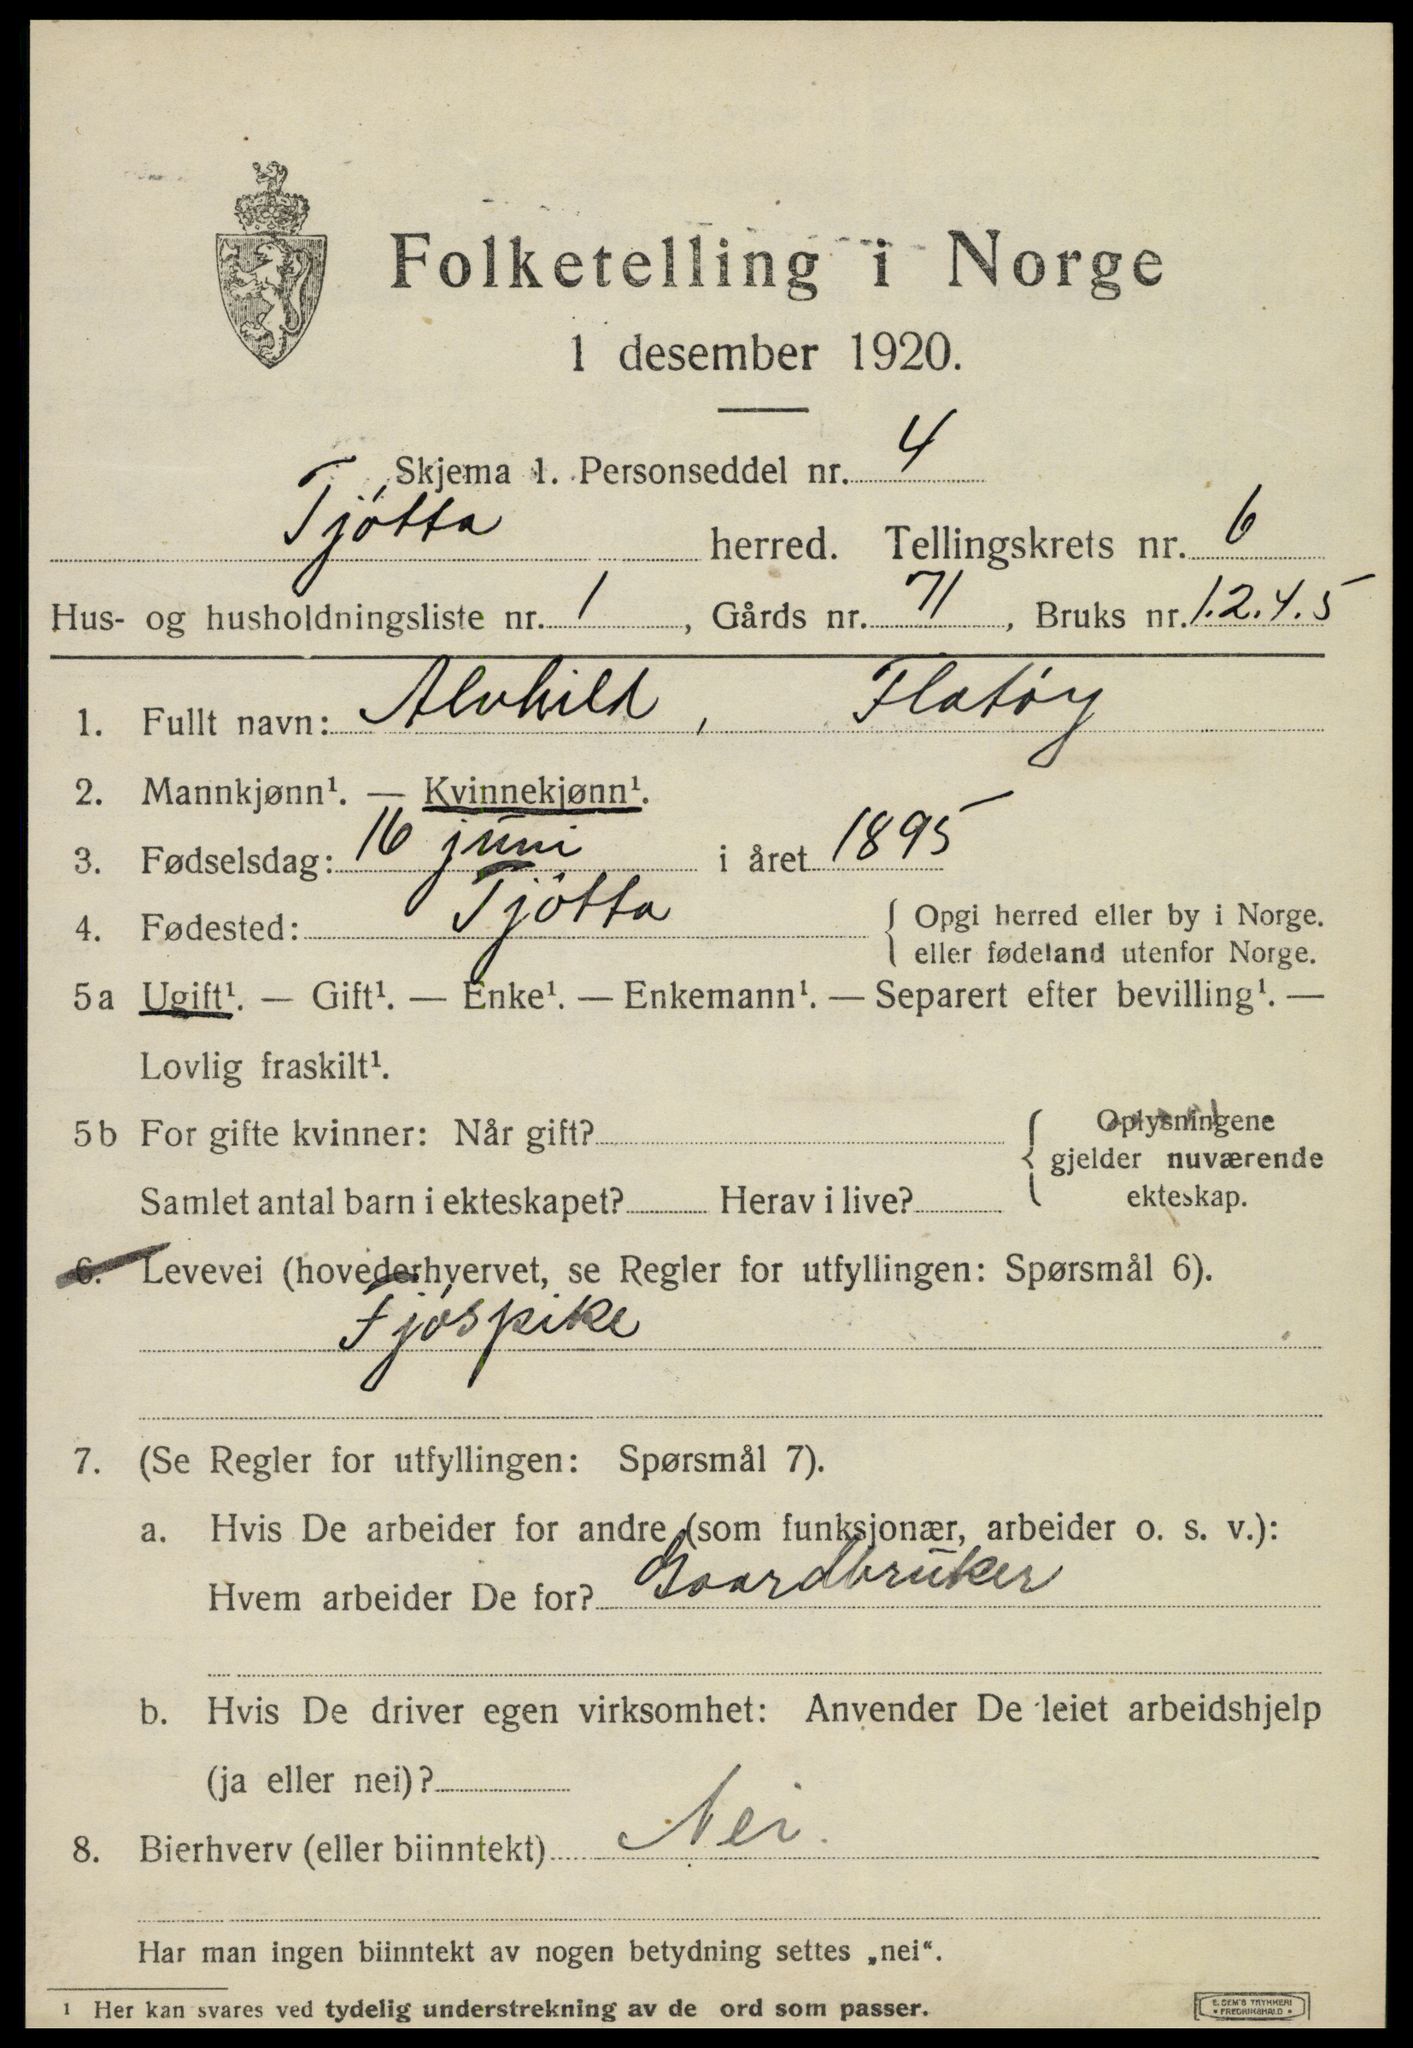 Folketelling i Norge
1 desember 1920.
Skjema 1. Personseddel nr. 4
Tjötta herred. Tellingskrets nr. 6
Hus- og husholdningsliste nr. 1, Gårds nr. 71, Bruks nr. 1.2.4.5
1. Fullt navn: Alvhild, Flatøy
2. Mannkjønn¹. — Kvinnekjønn¹.
3. Fødselsdag: 16 juni i året 1895
4. Fødested: Tjötta { Opgi herred eller by i Norge.
eller fødeland utenfor Norge.
5a Ugift¹. — Gift¹. — Enke¹. — Enkemann¹. — Separert efter bevilling¹. —
Lovlig fraskilt¹.
5b For gifte kvinner: Når gift? { Oplysningene
gjelder nuværende
Samlet antal barn i ekteskapet? Herav i live? ekteskap.
6. Levevei (hovederhvervet, se Regler for utfyllingen: Spørsmål 6).
Fjöspike
7. (Se Regler for utfyllingen: Spørsmål 7).
a. Hvis De arbeider for andre (som funksjonær, arbeider o. s. v.):
Hvem arbeider De for? Gaardbruker
b. Hvis De driver egen virksomhet: Anvender De leiet arbeidshjelp
(ja eller nei)?
8. Bierhverv (eller biinntekt) Nei.
Har man ingen biinntekt av nogen betydning settes „nei“.
¹ Her kan svares ved tydelig understrekning av de ord som passer.
E. SEM'S TRYKKERI
• FREDRIKSHALD •